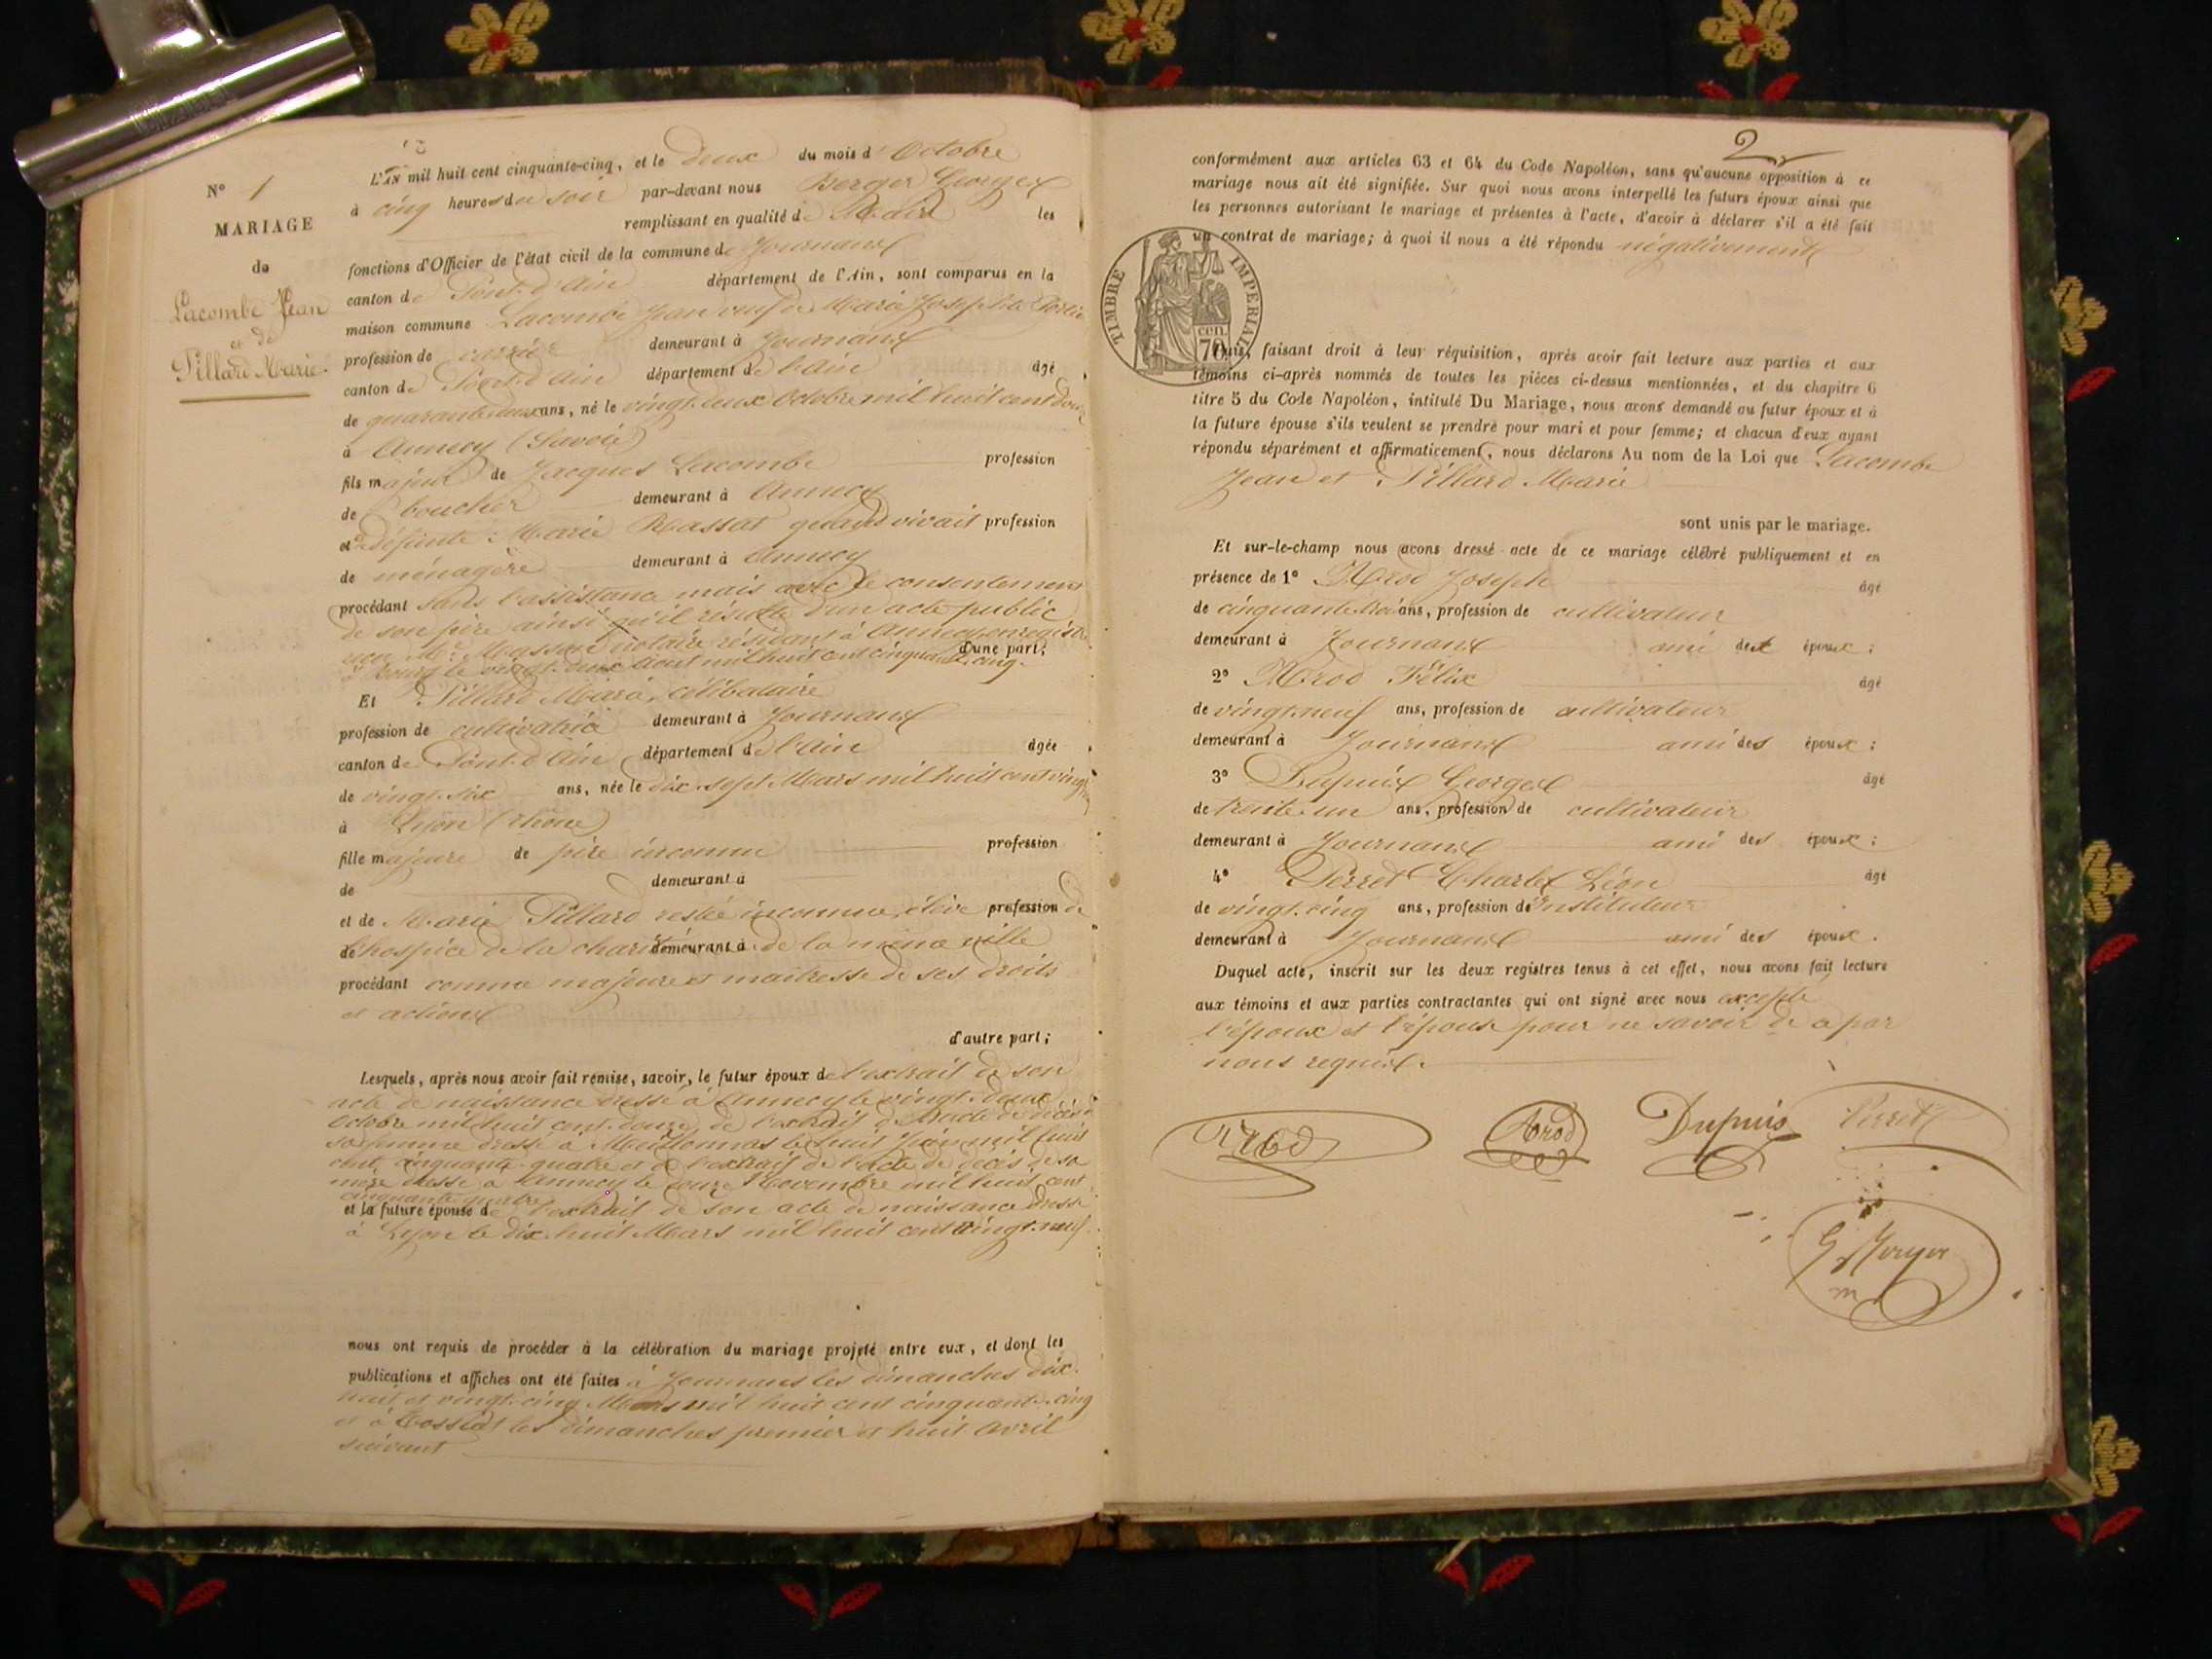 N° 1
MARIAGE
de
Lacombe Jean
et de
Pillard Marie
L'AN mil huit cent cinquante-cinq, et le deux du mois d'Octobre
à cinq heures du soir par-devant nous Berger Georges
remplissant en qualité de Maire les
fonctions d'Officier de l'état civil de la commune de Journans
canton de Pont d'Ain département de l'Ain, sont comparus en la
maison commune Lacombe Jean veuf de Marie Josephte
profession de carrier demeurant à Journans
canton de Pont d'Ain département de l'Ain âgé
de quarante deux ans, né le vingt deux Octobre mil huit cent douze
à Annecy (Savoie)
fils majeur de Jacques Lacombe profession
de boucher demeurant à Annecy
et de défunte Marie Massat quand vivait profession
de ménagère demeurant à Annecy
procédant sans l'assistance mais avec le consentement
de son père ainsi qu'il résulte d'un acte public
reçu Me Masson notaire résidant à Annecy, enregistré
à Bourg le vingt deux Aout mil huit cent cinquante cinq. d'une part;
Et Pillard Marie, célibataire
profession de cultivatrice demeurant à Journans
canton de Pont d'Ain département de l'Ain âgée
de vingt-six ans, née le dix-sept Mars mil huit cent vingt
à Lyon (Rhône)
fille majeure de père inconnu profession
de demeurant à
et de Marie Pillard restée inconnue, élève profession de
de l'hospice de la charité demeurant à de la même ville
procédant comme majeure et maitresse de ses droits
et actions
d'autre part;
Lesquels, après nous avoir fait remise, savoir, le futur époux de l'extrait de son
acte de naissance dressé à Annecy le vingt-deux
Octobre mil huit cent douze, de l'extrait de l'acte de décès de
sa femme dressé à Meillonnas le huit Juin mil huit
cent cinquante quatre et de l'extrait de l'acte de décès de sa
mère dressé à Annecy le douze Novembre mil huit cent
cinquante quatre
et la future épouse de l'extrait de son acte de naissance dressé
à Lyon le dix-huit Mars mil huit cent vingt-neuf.
nous ont requis de procéder à la célébration du mariage projeté entre eux, et dont les
publications et affiches ont été faites à Journans les dimanches dix-
huit et vingt-cinq Mars mil huit cent cinquante-cinq
et à Tossiat les dimanches premier et huit Avril
suivant
2
conformément aux articles 63 et 64 du Code Napoléon, sans qu'aucune opposition à ce
mariage nous ait été signifiée. Sur quoi nous avons interpellé les futurs époux ainsi que
les personnes autorisant le mariage et présentes à l'acte, d'avoir à déclarer s'il a été fait
un contrat de mariage; à quoi il nous a été répondu négativement
TIMBRE IMPERIAL
70 cen.
Puis, faisant droit à leur réquisition, après avoir fait lecture aux parties et aux
témoins ci-après nommés de toutes les pièces ci-dessus mentionnées, et du chapitre 6
titre 5 du Code Napoléon, intitulé Du Mariage, nous avons demandé au futur époux et à
la future épouse s'ils veulent se prendre pour mari et pour femme; et chacun d'eux ayant
répondu séparément et affirmativement, nous déclarons Au nom de la Loi que Lacombe
Jean et Pillard Marie
sont unis par le mariage.
Et sur-le-champ nous avons dressé acte de ce mariage célébré publiquement et en
présence de 1° Arod Joseph âgé
de cinquante trois ans, profession de cultivateur
demeurant à Journans ami des époux;
2° Arod Félix âgé
de vingt-neuf ans, profession de cultivateur
demeurant à Journans ami des époux;
3° Dupuis Georges âgé
de trente un ans, profession de cultivateur
demeurant à Journans ami des époux;
4° Perret Charles Léon âgé
de vingt-cinq ans, profession d'Instituteur
demeurant à Journans ami des époux.
Duquel acte, inscrit sur les deux registres tenus à cet effet, nous avons fait lecture
aux témoins et aux parties contractantes qui ont signé avec nous excepté
l'époux et l'épouse pour ne savoir de ce par
nous requis.
Arod Arod Dupuis Perret
G Berger
m